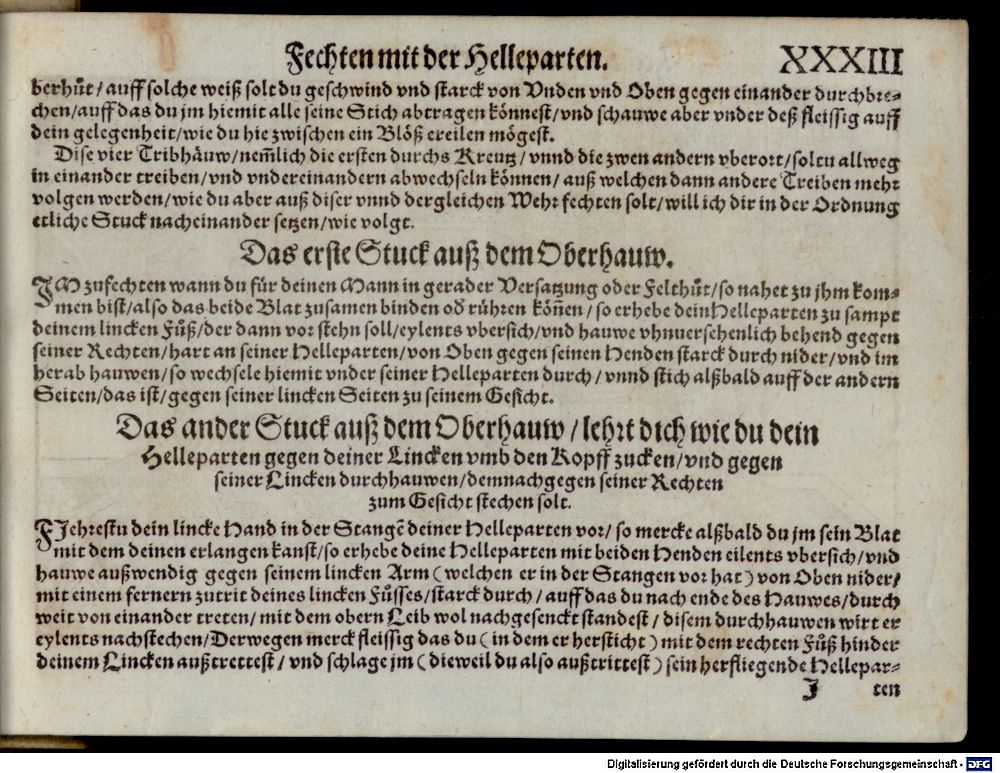 Fechten mit der Helleparten. XXXIII
berhůt/ auff solche weiß solt du geschwind vnd starck von Vnden vnd Oben gegen einander durchbre⸗
chen/auff das du jm hiemit alle seine Stich abtragen könnest/vnd schauwe aber vnder deß fleissig auff
dein gelegenheit/wie du hie zwischen ein Blöß ereilen mögest.
Dise vier Tribhäuw/nem̃lich die ersten durchs Kreutz/ vnnd die zwen andern vberort/soltu allweg
in einander treiben/vnd vndereinandern abwechseln können/ auß welchen dann andere Treiben mehr
volgen werden/wie du aber auß diser vnnd dergleichen Wehr fechten solt/will ich dir in der Ordnung
etliche Stuck nacheinander setzen/wie volgt.
Das erste Stuck auß dem Oberhauw.
IM zufechten wann du für deinen Mann in gerader Versatzung oder Felthůt/so nahet zu jhm kom⸗
men bist/also das beide Blat zusamen binden od̕ rühren köñen/ so erhebe dein Helleparten zu sampt
deinem lincken Fůß/der dann vor stehn soll/eylents vbersich/vnd hauwe vhnuersehenlich behend gegen
seiner Rechten/hart an seiner Helleparten/von Oben gegen seinen Henden starck durch nider/vnd im
herab hauwen/so wechsele hiemit vnder seiner Helleparten durch/ vnnd stich alßbald auff der andern
Seiten/das ist/gegen seiner lincken Seiten zu seinem Gesicht.
Das ander Stuck auß dem Oberhauw/lehrt dich wie du dein
Helleparten gegen deiner Lincken vmb den Kopff zucken/vnd gegen
seiner Lincken durchhauwen/demnach gegen seiner Rechten
zum Gesicht stechen solt.
FJehrestu dein lincke Hand in der Stangē deiner Helleparten vor/ so mercke alßbald du jm sein Blat
mit dem deinen erlangen kanst/so erhebe deine Helleparten mit beiden Henden eilents vbersich/vnd
hauwe außwendig gegen seinem lincken Arm (welchen er in der Stangen vor hat) von Oben nider/
mit einem fernern zutrit deines lincken Fůsses/starck durch/ auff das du nach ende des Hauwes/durch
weit von einander treten/mit dem obern Leib wol nachgesenckt standest/ disem durchhauwen wirt er
eylents nachstechen/Derwegen merck fleissig das du (in dem er hersticht) mit dem rechten Fůß hinder
deinem Lincken außtrettest/ vnd schlage jm (dieweil du also außtrittest) sein herfliegende Hellepar⸗
J ten
Digitalisierung gefördert durch die Deutsche Forschungsgemeinschaft - DFG